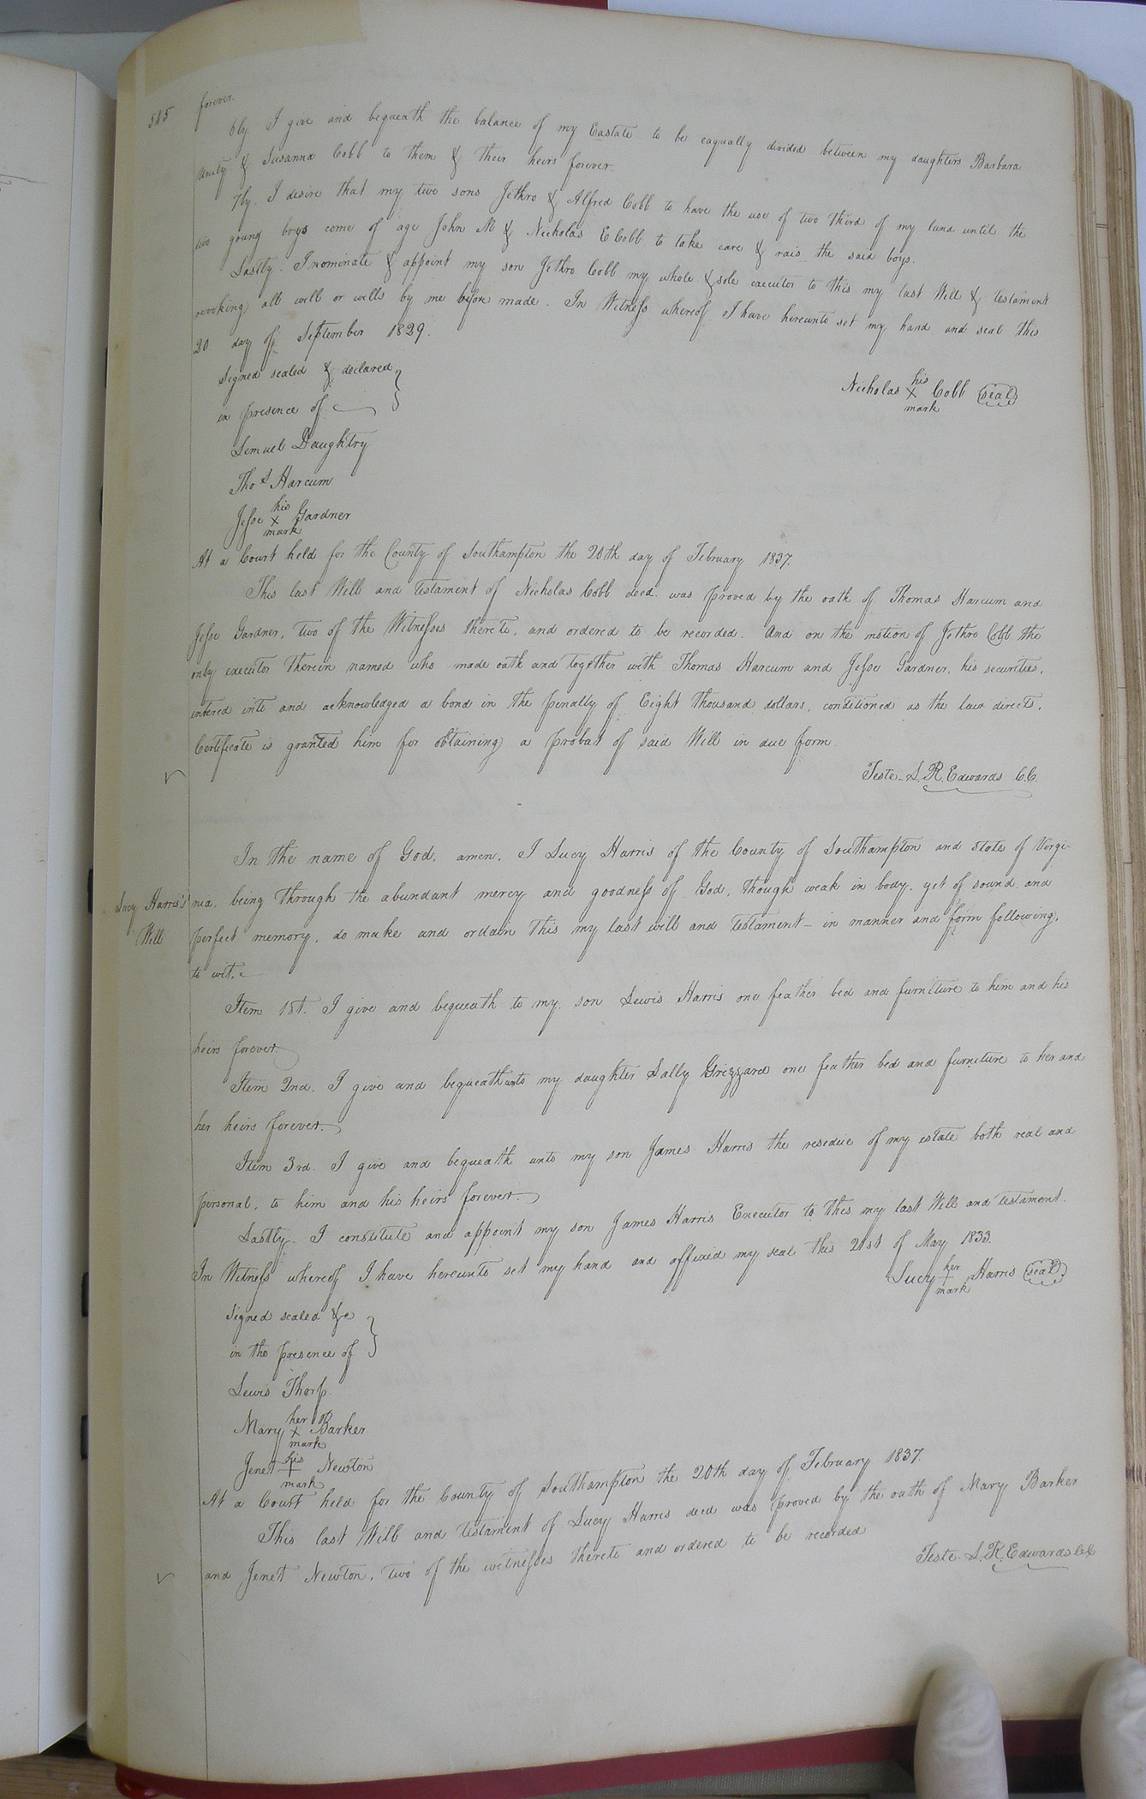 585 forever.
6ly I give and bequeath the balance of my Eastate to be eaqually divided between my daughters Barbara
Amity & Susanna Cobb to them & their heirs forever.
7ly. I desire that my two sons Jethro & Alfred Cobb to have the use of two third of my land until the
two young boys come of age John M & Nicholas E Cobb to take care & rais the said boys.
Lastly. I nominate & appoint my son Jethro Cobb my whole & sole executor to this my last Will & testament
revoking all will or wills by me before made. In Witness whereof I have hereunto set my hand and seal this
20 day of September 1829.
Signed sealed & declared
in presence of
Nicholas his X mark Cobb (seal)
Lemuel Daughtry
Thos. Harcum
Jesse his X mark Gardner
At a Court held for the County of Southampton the 20th day of February 1837.
This last Will and testament of Nicholas Cobb decd. was proved by the oath of Thomas Harcum and
Jesse Gardner, two of the Witnesses thereto, and ordered to be recorded. And on the motion of Jethro Cobb the
only executor therein named who made oath and together with Thomas Harcum and Jesse Gardner, his securities,
entered into and acknowledged a bond in the penalty of Eight thousand dollars, conditioned as the law directs,
Certificate is granted him for obtaining a probat of said Will in due form
Teste. L. R. Edwards C.C.
In the name of God, amen, I Lucy Harris of the County of Southampton and state of Virgi-
Lucy Harris's nia, being through the abundant mercy and goodness of God, though weak in body, yet of sound and
Will perfect memory, do make and ordain this my last will and testament - in manner and form following,
to wit.
Item 1st. I give and bequeath to my son Lewis Harris one feather bed and furniture to him and his
heirs forever.
Item 2nd. I give and bequeath unto my daughter Sally Grizzard one feather bed and furniture to her and
her heirs forever.
Item 3rd. I give and bequeath unto my son James Harris the resedue of my estate both real and
personal, to him and his heirs forever.
Lastly. I constitute and appoint my son James Harris Executor to this my last Will and testament.
In Witness whereof I have hereunto set my hand and affixed my seal this 21st of May 1833.
Lucy her + mark Harris (seal)
Signed sealed &c
in the presence of
Lewis Thorp
Mary her X mark Barker
Jenet his + mark Newton
At a Court held for the County of Southampton the 20th day of February 1837.
This last Will and testament of Lucy Harris decd was proved by the oath of Mary Barker
and Jenet Newton, two of the witnesses thereto and ordered to be recorded
Teste. L. R. Edwards C.C.